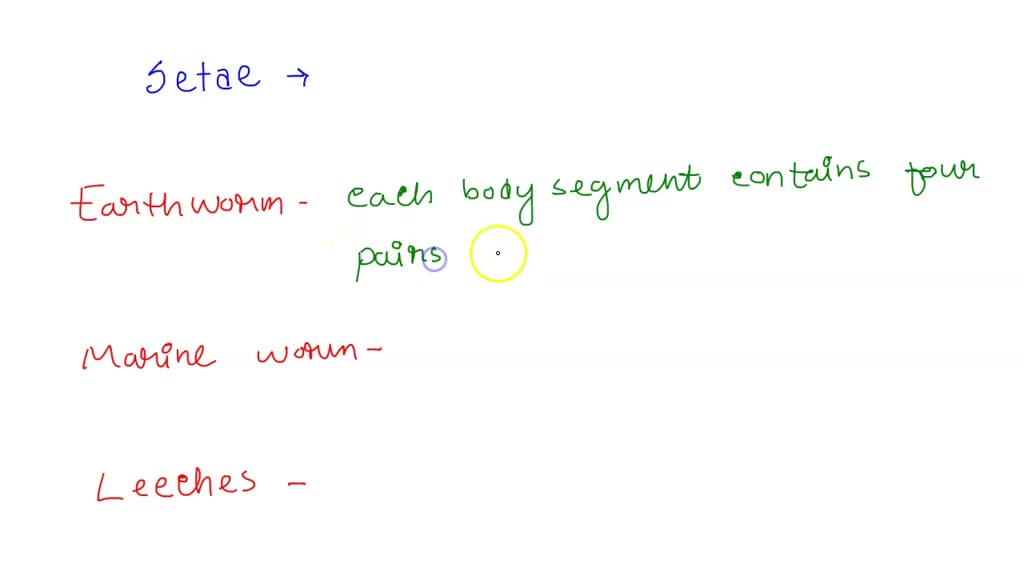 Setae →
Earthworm - each body segment contains four
pairs
Marine worm -
Leeches -